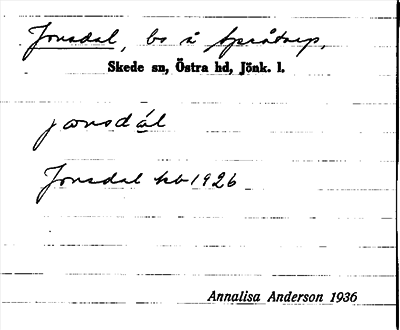 Jonsdal, bs å Språtorp,
Skede sn, Östra hd, Jönk. l.
jonsdál
Jonsdal kb 1926
Annalisa Anderson 1936